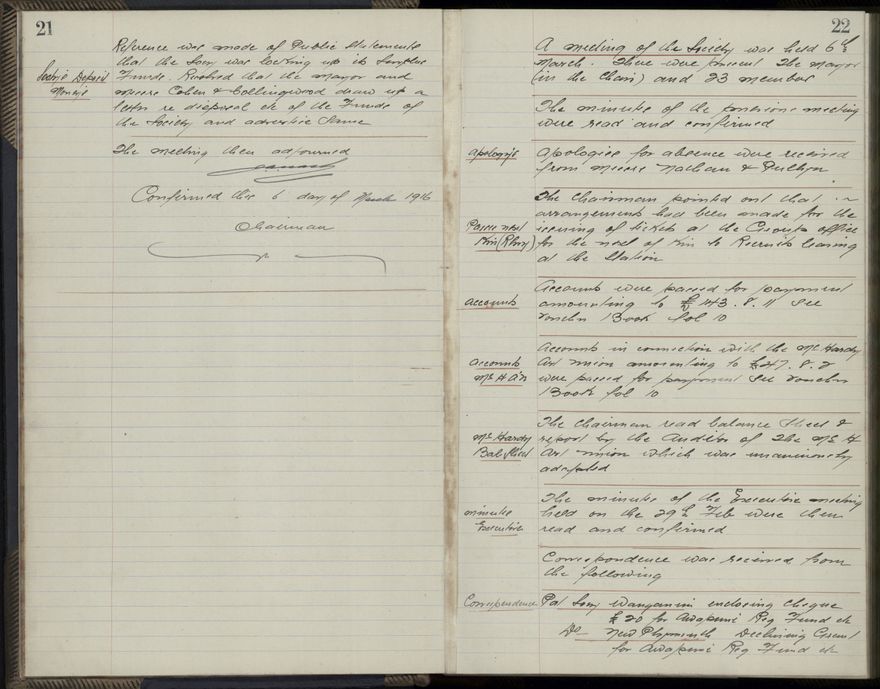 21
Reference was made of Public Statements
that the Socy was locking up its Surplus
Society's Deposit Funds. Resolved that the Mayor and
Moneys Messrs Cohen & Collingwood draw up a
letter re disposal etc of the Funds of
the Society and advertise Same
The meeting then adjourned
Confirmed this 6 day of March 1916
Chairman
22
A meeting of the Society was held 6th
March. There were present The Mayor
(in the Chair) and 23 members
The minutes of the previous meeting
were read and confirmed
Apologys Apologies for absence were received
from Messrs Nathan &
The Chairman pointed out that
arrangements had been made for the
Passes next issuing of tickets at the office
Kin (Rlwy) for the next of Kin to Recruits leaving
at the Station
Accounts were passed for payment
Accounts amounting to £143.8.11 See
Voucher Book fol 10
Accounts in connection with the McHardy
Accounts Art Union amounting to £47.8.2
McH A's were passed for payment See voucher
Book fol 10
The Chairman read balance Sheet &
McHardy report by the Auditor of The McH
Bal Sheet Art Union which was unanimously
adopted
The minutes of the Executive meeting
minutes held on the 29th Feb were then
Executive read and confirmed
Correspondence was received from
the following
Correspondence Pat Socy Wanganui enclosing cheque
£20 for Awapuni Reg Fund etc
Do New Plymouth Declining Consent
for Awapuni Reg Fund etc